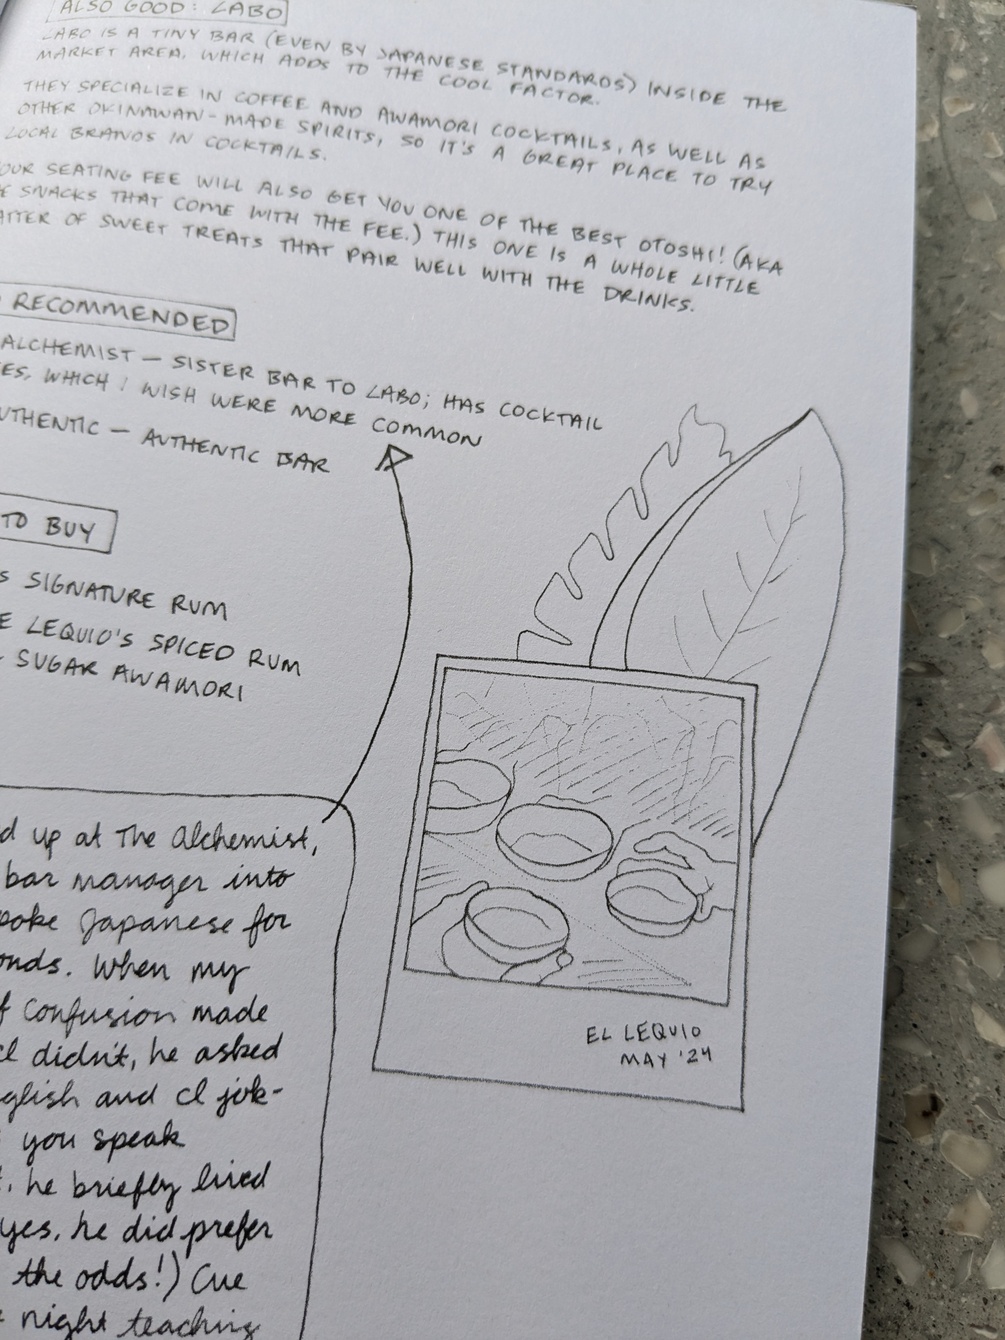 ALSO GOOD: LABO
LABO IS A TINY BAR (EVEN BY JAPANESE STANDARDS) INSIDE THE
MARKET AREA, WHICH ADDS TO THE COOL FACTOR.
THEY SPECIALIZE IN COFFEE AND AWAMORI COCKTAILS, AS WELL AS
OTHER OKINAWAN-MADE SPIRITS, SO IT'S A GREAT PLACE TO TRY
LOCAL BRANDS IN COCKTAILS.
OUR SEATING FEE WILL ALSO GET YOU ONE OF THE BEST OTOSHI! (AKA
E SNACKS THAT COME WITH THE FEE.) THIS ONE IS A WHOLE LITTLE
ATTER OF SWEET TREATS THAT PAIR WELL WITH THE DRINKS.
RECOMMENDED
ALCHEMIST — SISTER BAR TO LABO; HAS COCKTAIL
ES, WHICH I WISH WERE MORE COMMON
UTHENTIC — AUTHENTIC BAR
TO BUY
S SIGNATURE RUM
E LEQUIO'S SPICED RUM
SUGAR AWAMORI
d up at The Alchemist,
bar manager into
poke Japanese for
onds. When my
f confusion made
I didn't, he asked
glish and I jok-
you speak
, he briefly lived
yes, he did prefer
the odds!) Cue
night teaching
EL LEQUIO
MAY '24